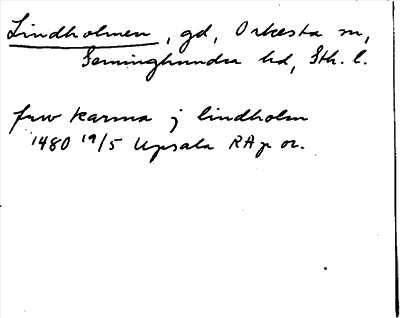 Lindholmen, gd, Orkesta sn,
Seminghundra hd, Sth. l.
fruw karina j lindholm
1480 19/5 Upsala RAp or.